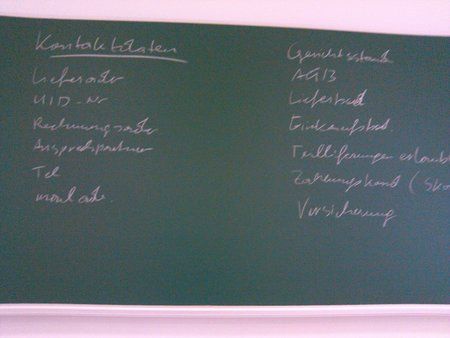 Kontaktdaten
Lieferadr
UID-Nr
Rechnungsadr.
Ansprechpartner
Tel
Gerichtsstand
AGB
Lieferbed
Einkaufsbed.
Teillieferungen erlaubt
Zahlungskond (Sko
Versicherung